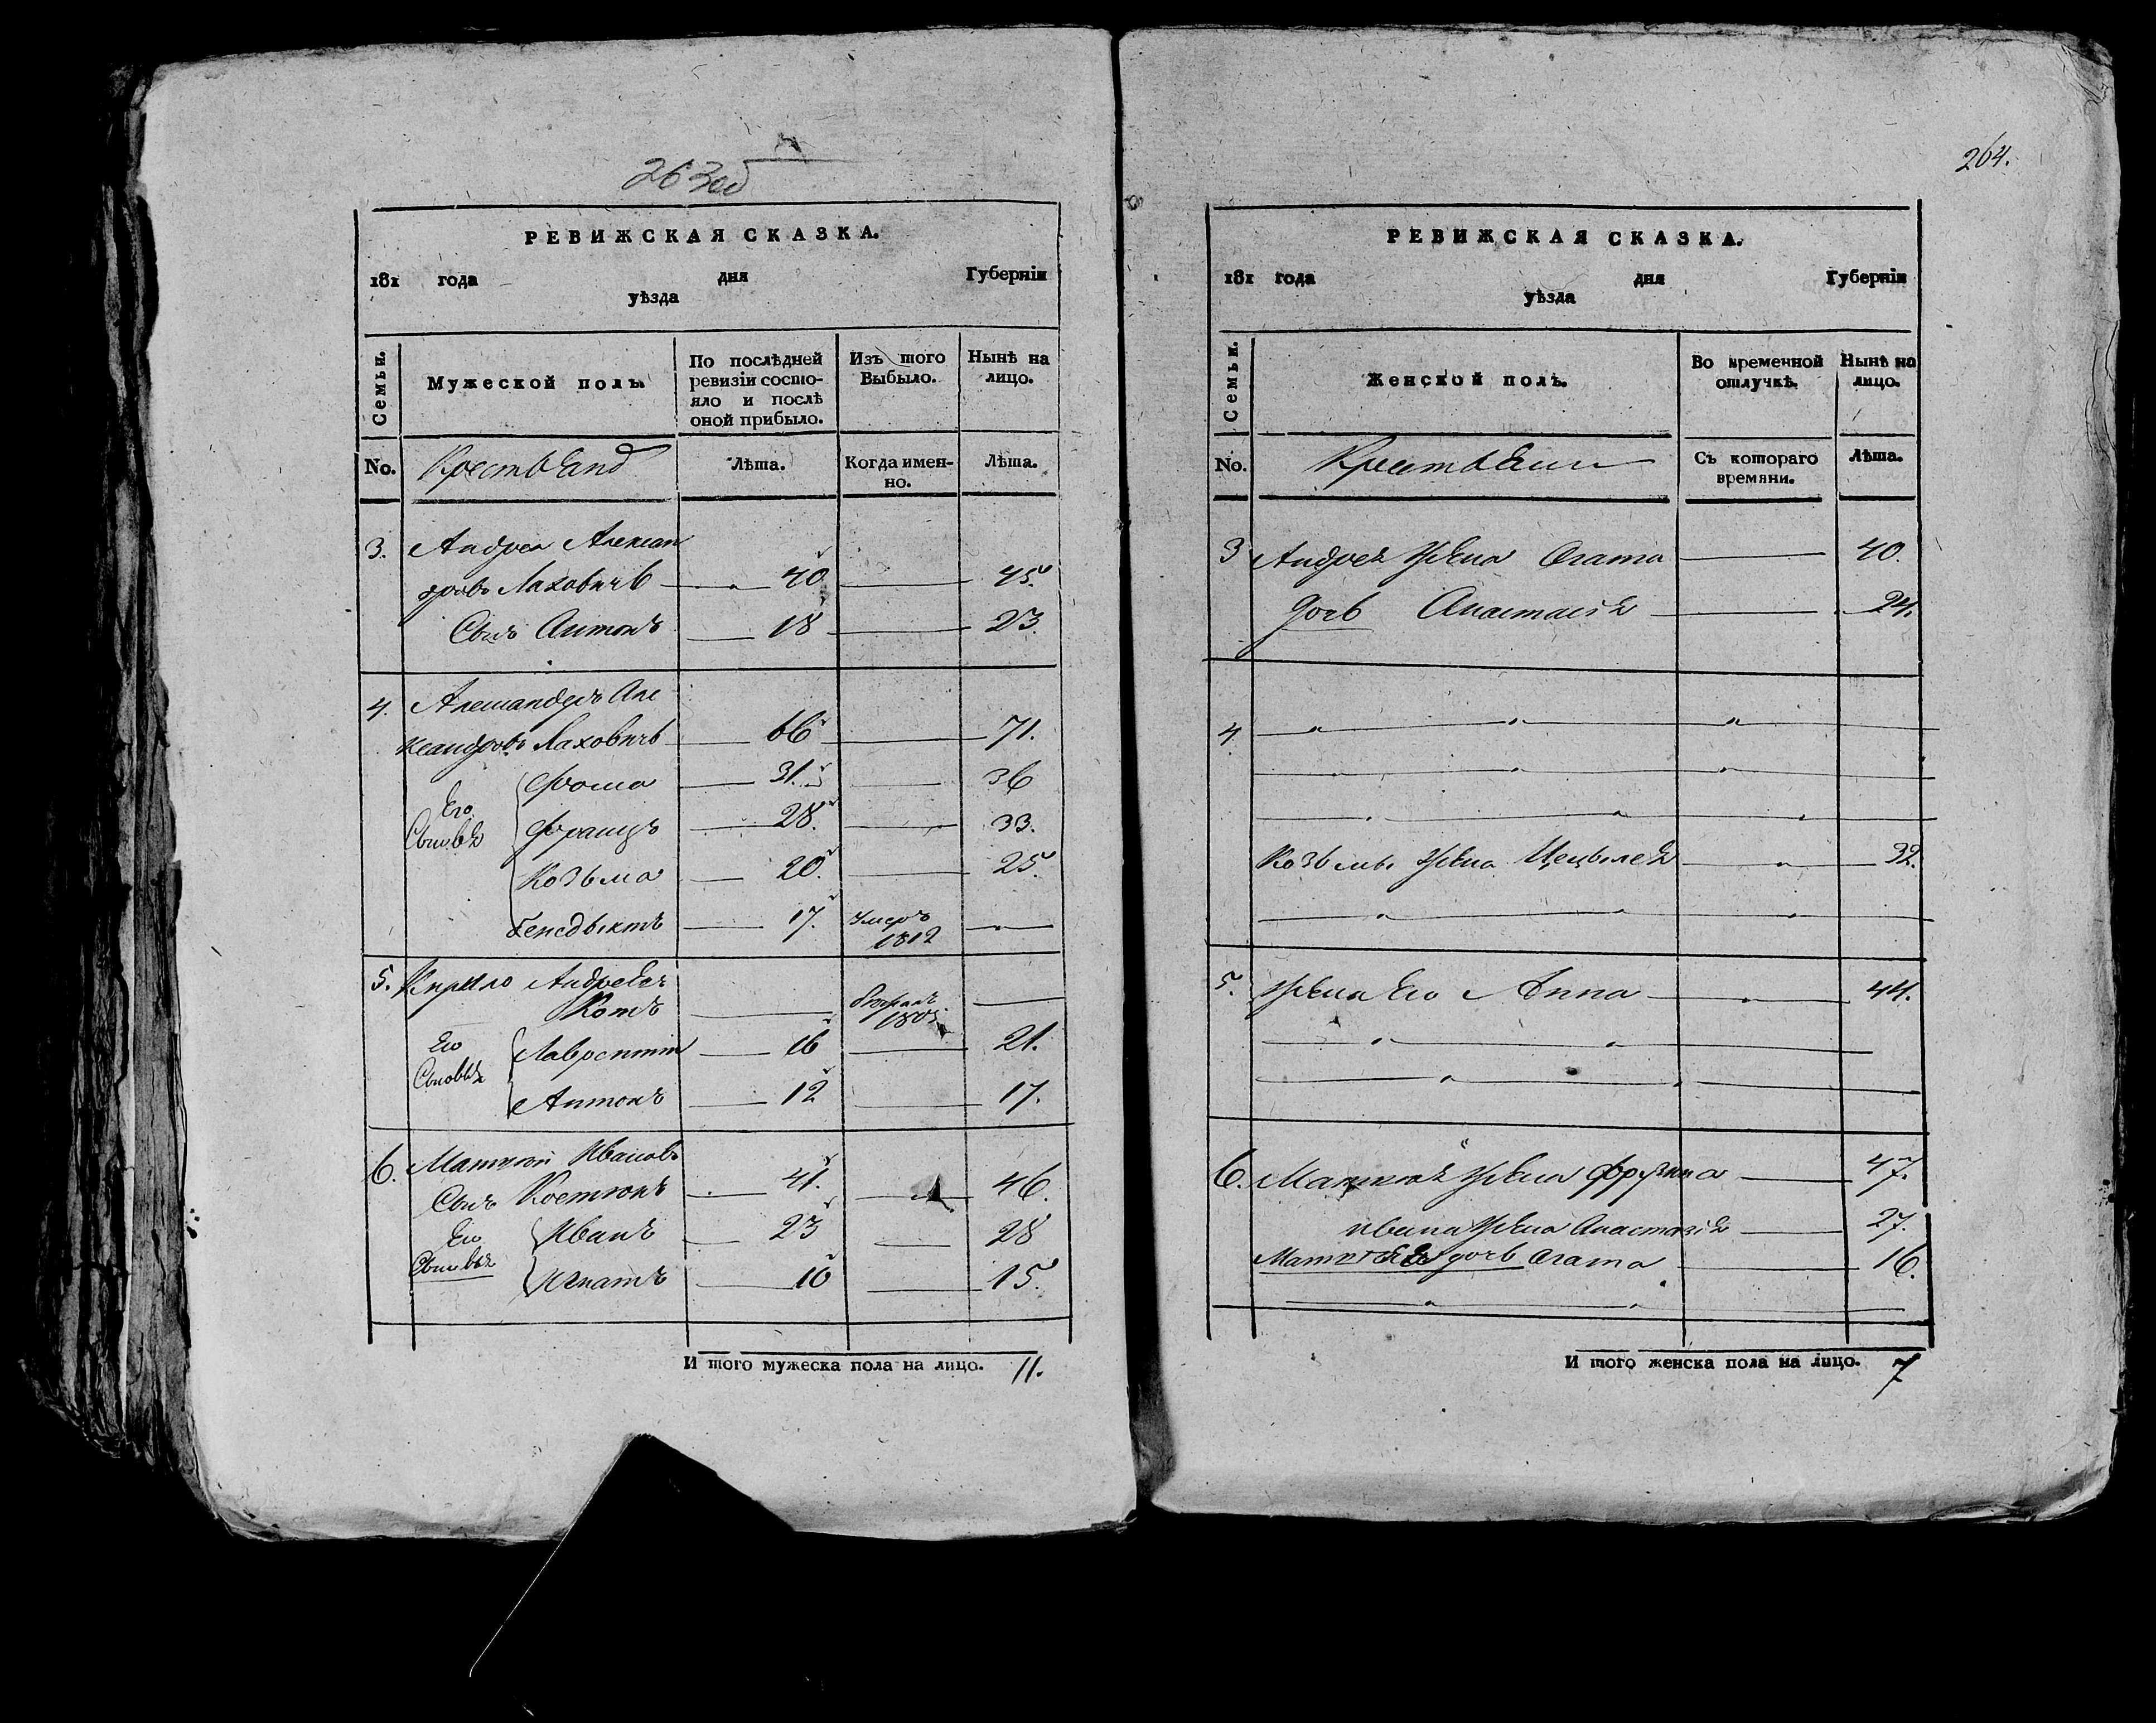 263об
РЕВИЖСКАЯ СКАЗКА.
181 года дня Губерніи
уѣзда
Семьи.
Мужеской полъ.
По послѣдней
ревизіи состо-
яло и послѣ
оной прибыло.
Изъ того
Выбыло.
Нынѣ на
лицо.
No.
Лѣта.
Когда имен-
но.
Лѣта.
3. Андрей Алексан
дровъ Лаховичъ 40 45.
Сынъ Антонъ 18 23.
4. Александеръ Але
ксандровъ Лаховичъ 66 71.
Его
Сыновья
Фома 31. 36
Францъ 28. 33.
Козьма 20. 25.
Бенедыктъ 17. умеръ
1812
5. Кирыло Андреевъ
Котъ
Его
Сыновья
Лаврентій 16 21.
Антонъ 12 17.
6. Иванова
Сынъ Костюкъ 41. 46.
Его
Сыновья
Иванъ 23 28
Игнатъ 10 15.
И того мужеска пола на лицо. 11.
264.
РЕВИЖСКАЯ СКАЗКА.
181 года дня Губерніи
уѣзда
Семьи.
Женской полъ.
Во временной
отлучкѣ.
Нынѣ на
лицо.
No.
Съ котораго
времяни.
Лѣта.
3 Андрея жена Огата 40.
дочь Анастасія 24.
4
Козьмы жена 32.
5. Жена его Анна 44.
6. жена 47.
Ивана жена Анастазія 27.
дочь Огата 16.
И того женска пола на лицо. 7